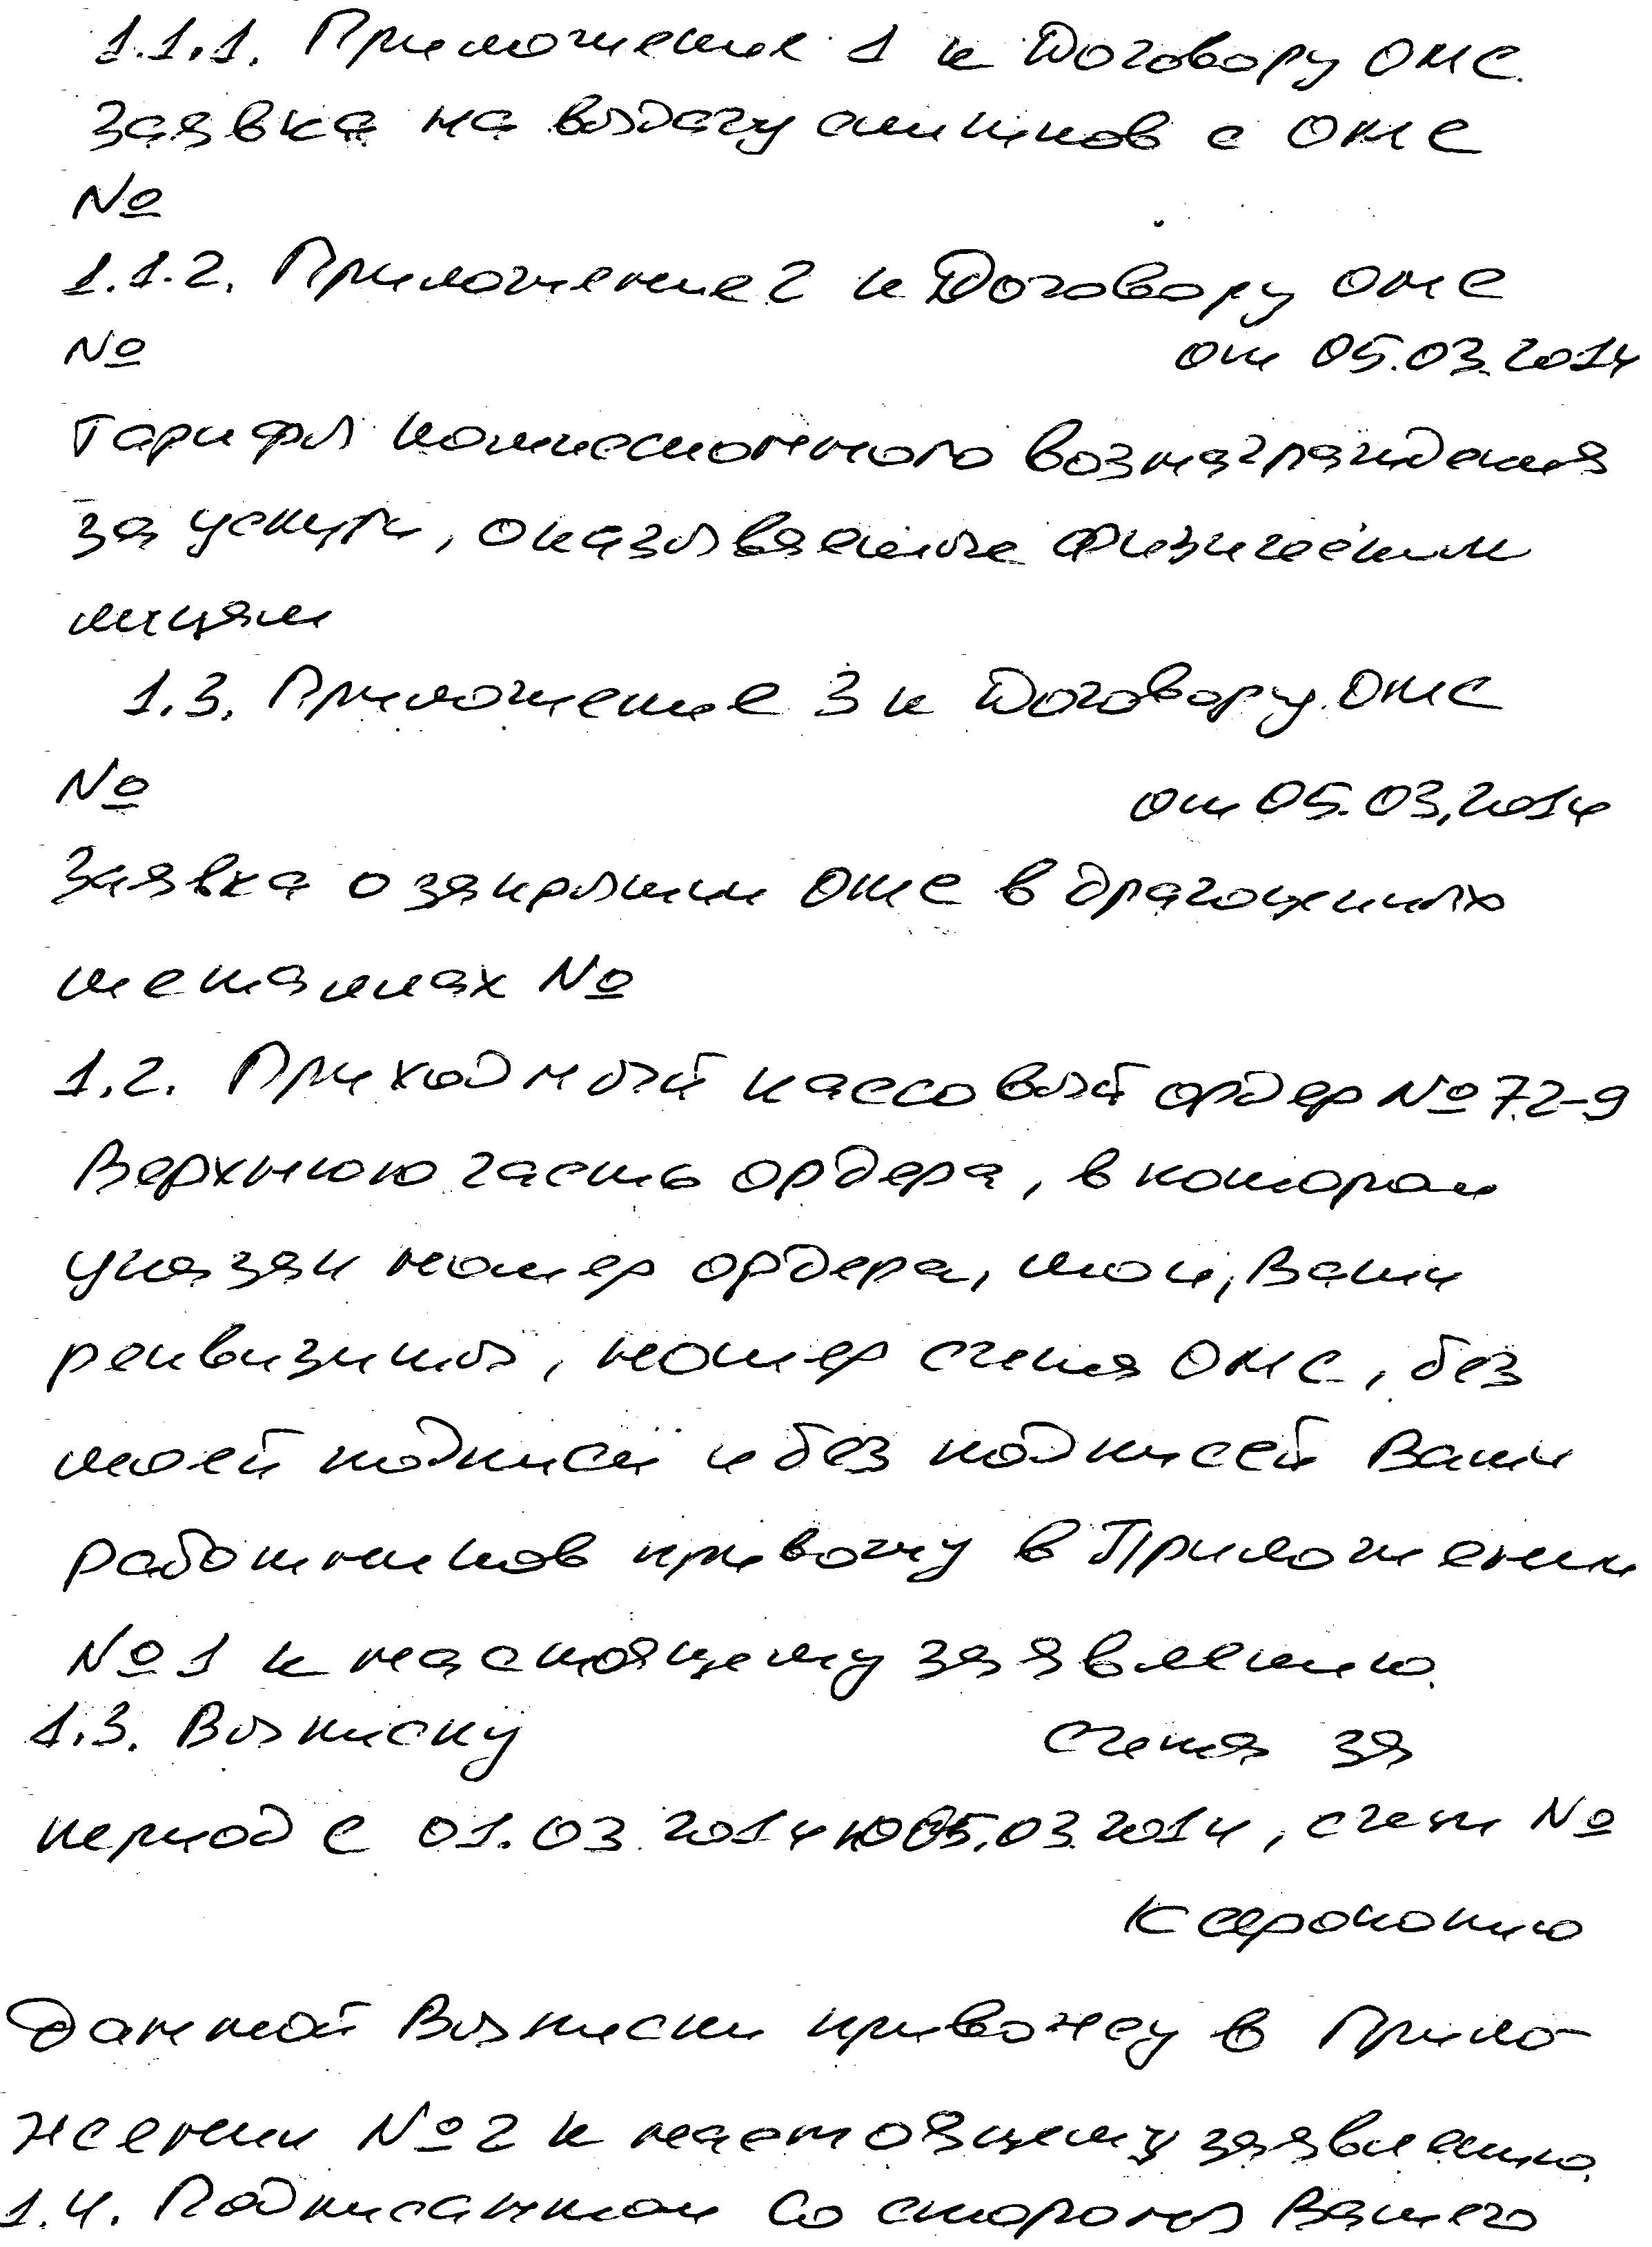 1.1.1. Приложение 1 к Договору ОМС.
Заявка на выдачу слитков с ОМС
№
1.1.2. Приложение 2 к Договору ОМС
№ от 05.03.2014
Тарифы комиссионного вознаграждения
за услуги, оказываемые физическим
лицам
1.3. Приложение 3 к Договору ОМС
№ от 05.03.2014
Заявка о закрытии ОМС в драгоценных
металлах №
1.2. Приходный кассовый ордер № 72-9
Верхнюю часть ордера, в котором
указан номер ордера, мои, Ваши
реквизиты, номер счета ОМС, без
моей подписи и без подписей Ваши
работников привожу в Приложении
№1 к настоящему заявлению.
1.3. Выписку счета за
период с 01.03.2014 по 05.03.2014, счет №
Ксерокопию
данной Выписки привожу в Прило-
жении №2 к настоящему заявлению.
1.4. Подписантом со стороны Вашего